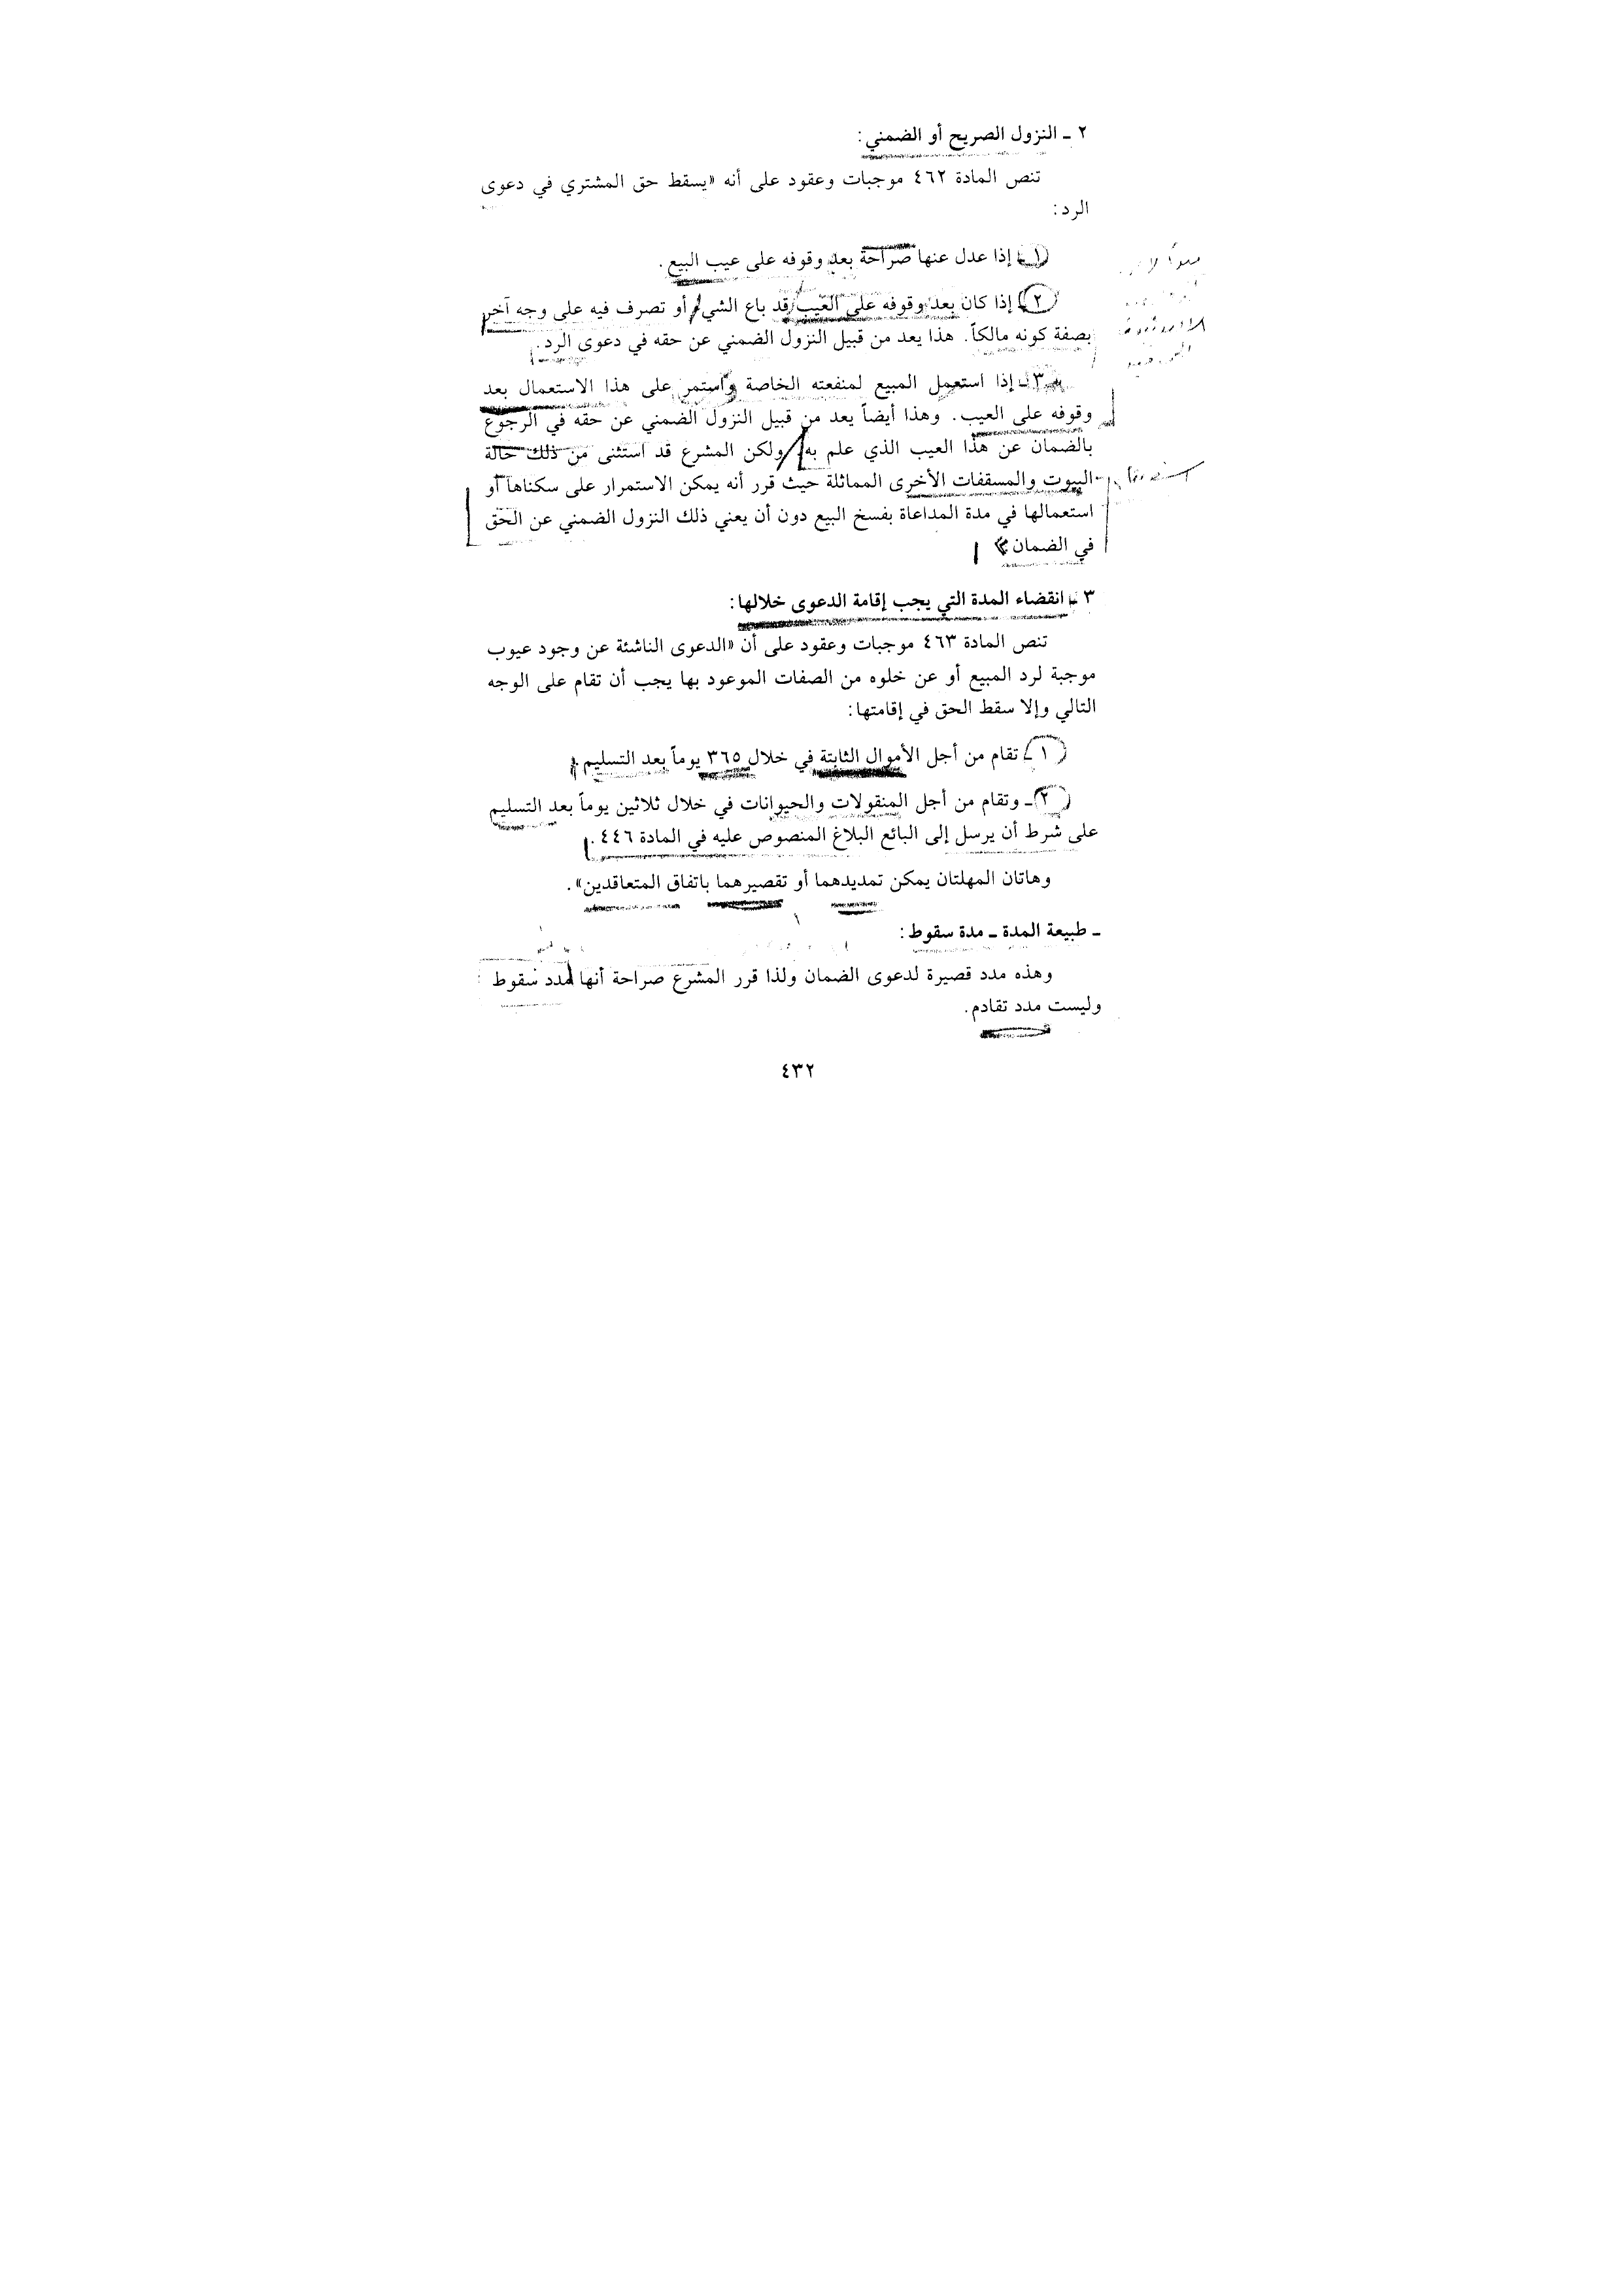 ٢ ـ النزول الصريح أو الضمني:
تنص المادة ٤٦٢ موجبات وعقود على أنه «يسقط حق المشتري في دعوى
الرد:
١ـ إذا عدل عنها صراحة بعد وقوفه على عيب البيع.
٢ـ إذا كان بعد وقوفه على العيب قد باع الشيء أو تصرف فيه على وجه آخر
بصفة كونه مالكاً. هذا يعد من قبيل النزول الضمني عن حقه في دعوى الرد.
٣ـ إذا استعمل المبيع لمنفعته الخاصة واستمر على هذا الاستعمال بعد
وقوفه على العيب. وهذا أيضاً يعد من قبيل النزول الضمني عن حقه في الرجوع
بالضمان عن هذا العيب الذي علم به. ولكن المشرع قد استثنى من ذلك حالة
البيوت والمسقفات الأخرى المماثلة حيث قرر أنه يمكن الاستمرار على سكناها أو
استعمالها في مدة المداعاة بفسخ البيع دون أن يعني ذلك النزول الضمني عن الحق
في الضمان».
٣ ـ انقضاء المدة التي يجب إقامة الدعوى خلالها:
تنص المادة ٤٦٣ موجبات وعقود على أن «الدعوى الناشئة عن وجود عيوب
موجبة لرد المبيع أو عن خلوه من الصفات الموعود بها يجب أن تقام على الوجه
التالي وإلا سقط الحق في إقامتها:
١ـ تقام من أجل الأموال الثابتة في خلال ٣٦٥ يوماً بعد التسليم.
٢ـ وتقام من أجل المنقولات والحيوانات في خلال ثلاثين يوماً بعد التسليم
على شرط أن يرسل إلى البائع البلاغ المنصوص عليه في المادة ٤٤٦.
وهاتان المهلتان يمكن تمديدهما أو تقصيرهما باتفاق المتعاقدين».
ـ طبيعة المدة ـ مدة سقوط:
وهذه مدد قصيرة لدعوى الضمان ولذا قرر المشرع صراحة أنها مدد سقوط
وليست مدد تقادم.
٤٣٢